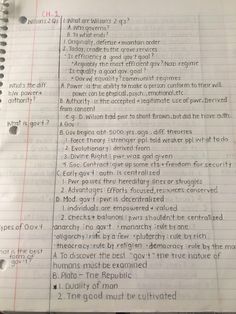 CH. 1
Wilson's 2 Q's
I. What are Wilson's 2 q's?
A. Who governs?
B. To what ends?
1. Originally, defense + maintain order
2. Today: cradle to the grave services
"Is efficiency a good gov't goal?
Arguably the most efficient gov't = Nazi regime
Is equality a good gov. goal?
communist regimes
What's the diff b/w power + authority?
A. Power is the ability to make a person conform to their will
power can be physical, psych., emotional, etc.
B. Authority is the accepted + legitimate use of pwr. derived
from consent
What is gov't?
A. Gov't
B. Gov begins abt 5000 yrs. ago - diff. theories
1. Force Theory: stronger ppl told weaker ppl what to do
2. Evolutionary: derived from
3. Divine Right: pwr was god given
4. Soc. Contract: give up some rts + freedom for security
C. Early gov't auth. is centralized
1. Pwr passed thru hereditary lines or struggles
2. Advantages: efforts focused, resources conserved
D. Mod. gov't pwr is decentralized
1. individuals are empowered + valued
2. checks + balances: pwrs shouldn't be centralized
Types of Gov't.
anarchy: no gov't · monarchy: rule by one
oligarchy: rule by a few · plutarchy: rule by rich
theocracy: rule by religion · democracy: rule by the
What is the best form of gov't?
A. To discover the best "gov't" the true nature of
humans must be examined
B. Plato - The Republic
1. Duality of man
2. The good must be cultivated